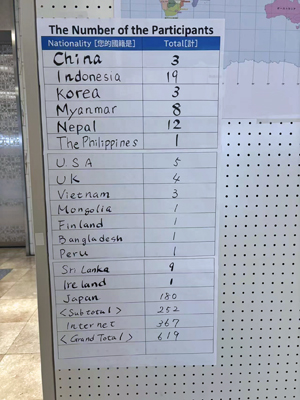 The Number of the Participants
Nationality [您的國籍是] Total[計]
China 3
Indonesia 19
Korea 3
Myanmar 8
Nepal 12
The Philippines 1
U.S.A 5
UK 4
Vietnam 3
Mongolia 1
Finland 1
Bangladesh 1
Peru 1
Sri Lanka 9
Ireland 1
Japan 180
<Subtotal> 252
Internet 367
<Grand Total> 619